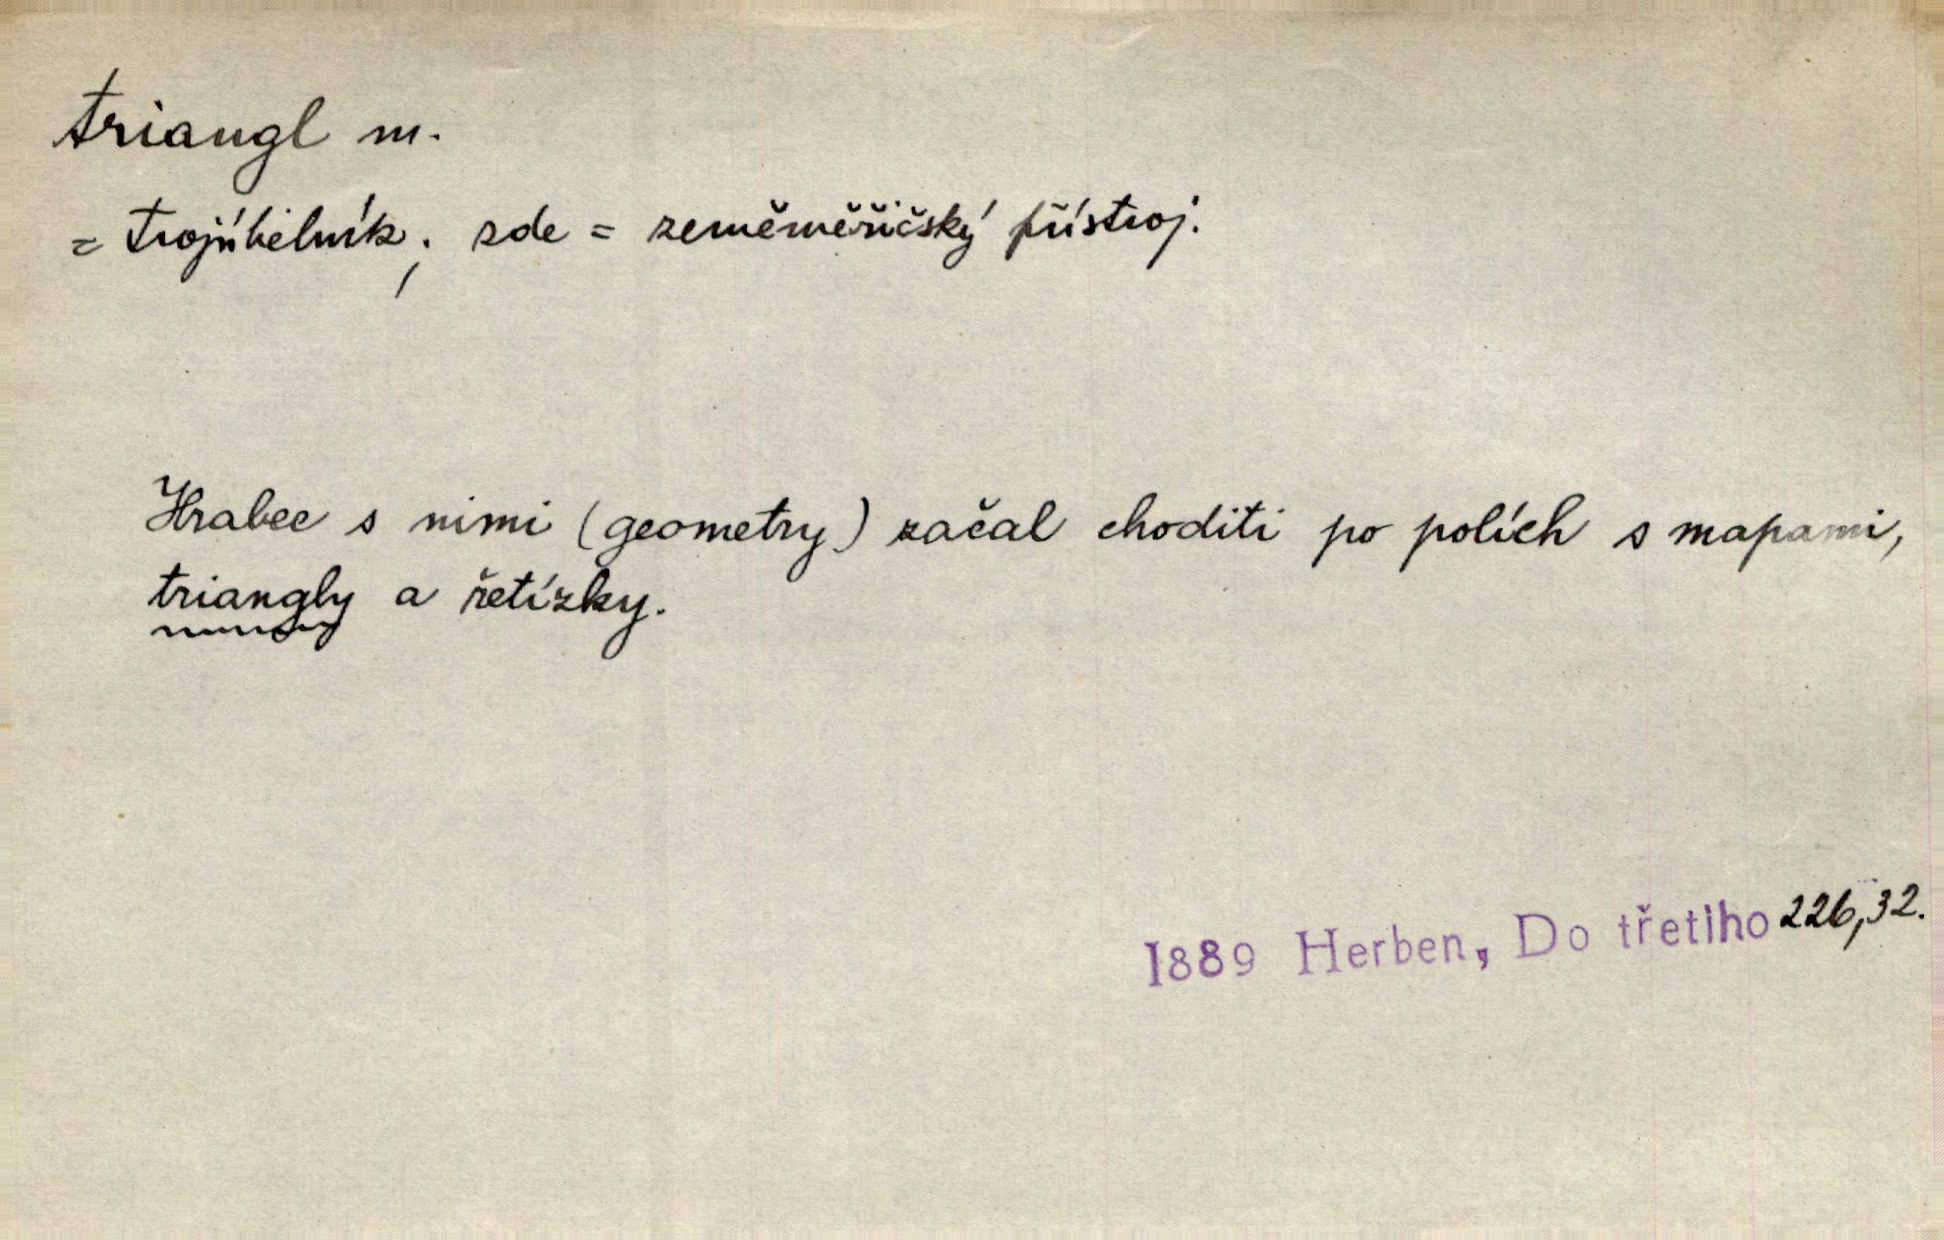 triangl m.
= trojúhelník; zde = zeměměřičský přístroj.
Hrabec s nimi (geometry) začal choditi po polích s mapami,
triangly a řetízky.
1889 Herben, Do třetího 226,32.